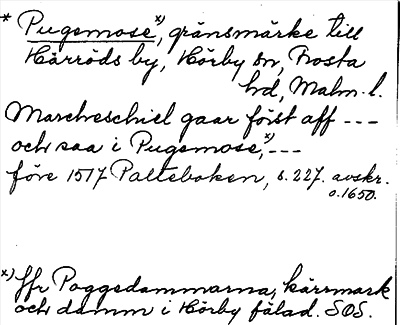 * Pugemose ˣ⁾, gränsmärke till
Härröds by, Hörby sn, Frosta
hd, Malm. l.
Marcheschiel gaar först aff ---
och saa i Pugemose,ˣ⁾---
före 1517 Palteboken, s. 227. avskr.
o. 1650.
ˣ⁾ Jfr Poggedammarna, kärrmark
och damm i Hörby fälad. SOS.